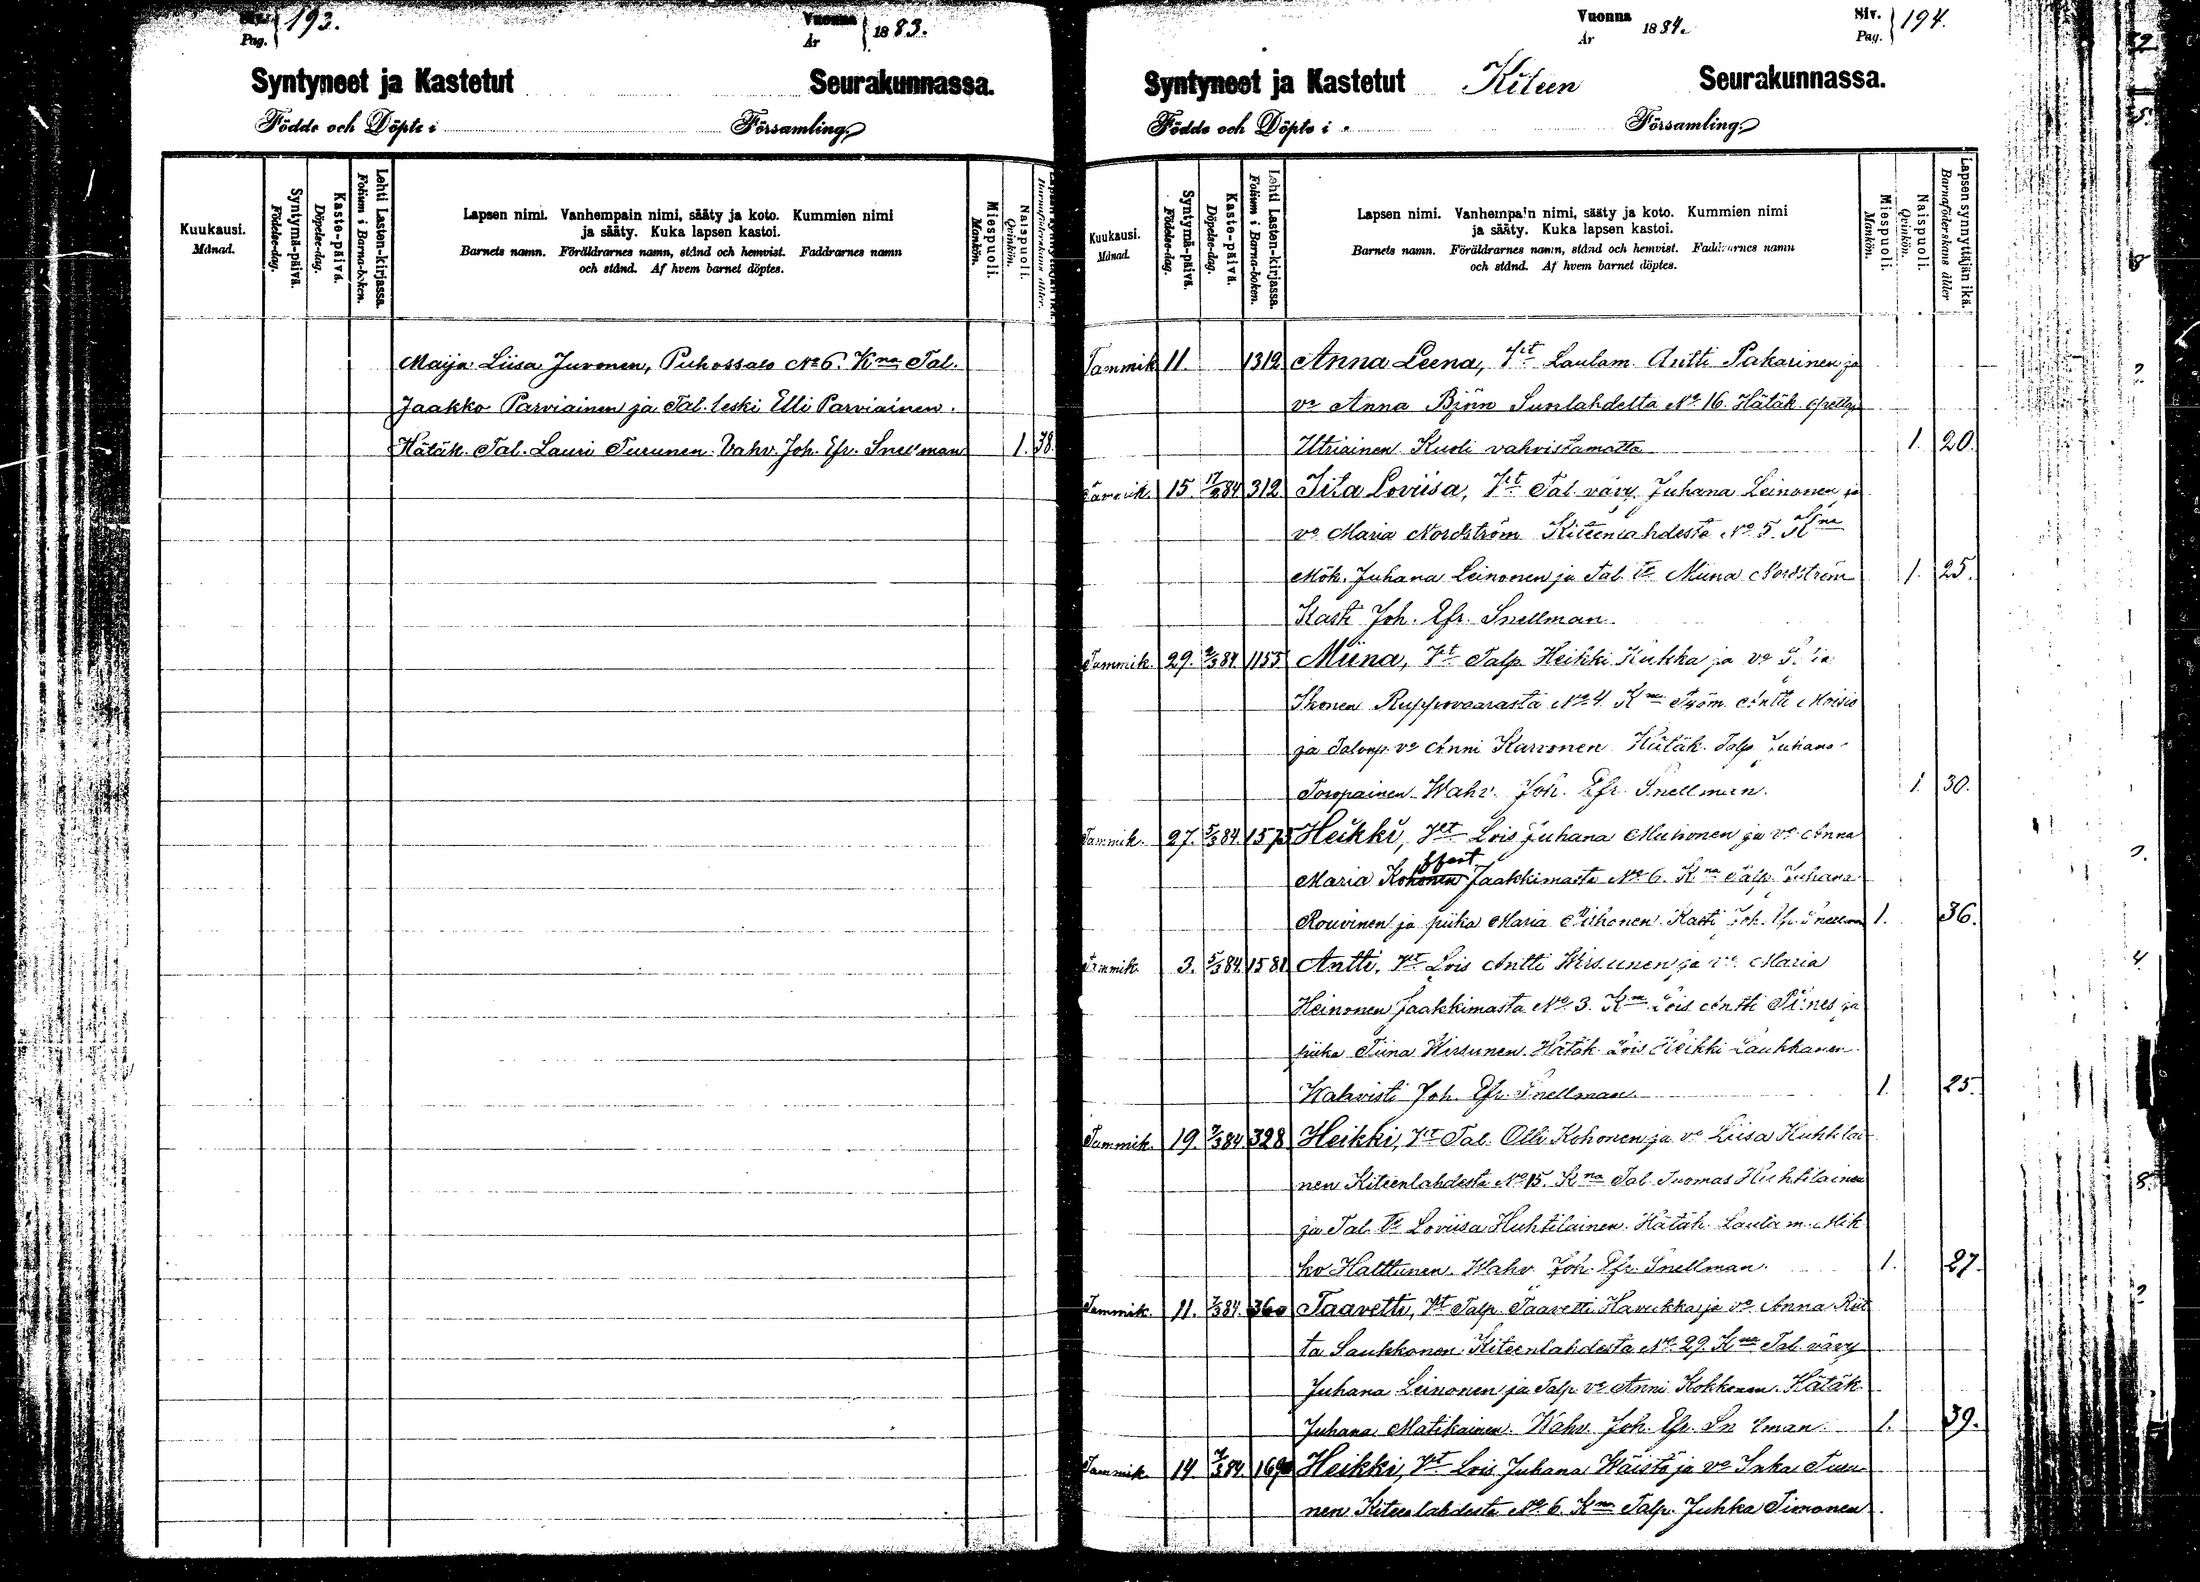 Siv. Pag. 193. Vuonna År 1883.
Syntyneet ja Kastetut Seurakunnassa.
Födde och Döpte i Församling.
Kuukausi. Månad.
Syntymä-päivä. Födelse-dag.
Kaste-päivä. Döpelse-dag.
Lehti Lasten-kirjassa. Folium i Barna-boken.
Lapsen nimi. Vanhempain nimi, sääty ja koto. Kummien nimi
ja sääty. Kuka lapsen kastoi.
Barnets namn. Föräldrarnes namn, stånd och hemvist. Faddrarnes namn
och stånd. Af hvem barnet döptes.
Miespuoli. Mankön.
Naispuoli. Qvinkön.
Maija Liisa Juvonen, Puhossalo No 6. Kna Tal.
Jaakko Parviainen ja Tal. leski Elli Parviainen.
Hätäk. Tal. Lauri Turunen. Vahv. Joh. Efr. Snellman 1. 38.
Vuonna År 1884. Siv. Pag. 194.
Syntyneet ja Kastetut Kiteen Seurakunnassa.
Födde och Döpte i Församling.
Kuukausi. Månad.
Syntymä-päivä. Födelse-dag.
Kaste-päivä. Döpelse-dag.
Lehti Lasten-kirjassa. Folium i Barna-boken.
Lapsen nimi. Vanhempain nimi, sääty ja koto. Kummien nimi
ja sääty. Kuka lapsen kastoi.
Barnets namn. Föräldrarnes namn, stånd och hemvist. Faddrarnes namn
och stånd. Af hvem barnet döptes.
Miespuoli. Mankön.
Naispuoli. Qvinkön.
Lapsen synnyttäjän ikä. Barnaföderskans ålder
Tammik 11. 1312 Anna Leena, Vt Lautam. Antti Pakarinen ja
vo Anna Björn Suorlahdelta No 16. Hätäk.
Utriainen Kuoli vahvistamatta 1. 20.
Tammik. 15. 17/2 84 312 Iita Loviisa, Vt Tal. vävy Juhana Leinonen ja
vo Maria Nordström Kiteenlahdesta No 5. Kna
Mök. Juhana Leinonen ja Tal. tr Miina Nordström 1. 25.
Kasti Joh. Efr. Snellman.
Tammik. 29. 2/3 84 1155 Miina, Vt Talp Heikki Kukka ja vo
Ihonen Ruppovaarasta No 4. Kna Työm. Antti Moisio
ja Talonp. vo Anni Karvonen Hätäk. Talp Juhana
Toropainen. Wahv. Joh. Efr. Snellman. 1. 30.
Tammik. 27. 5/3 84. 1575 Heikki, Vt Lois Juhana Muhonen ja vo Anna
Maria Kohonen Jaakkimasta No 6. Kna Talp. Juhana
Rouvinen ja piika Maria Kasti Joh. Efr. Snellman 1. 36.
Tammik. 3. 5/3 84. 1581 Antti, Vt Lois Antti Wirsunen ja vo Maria
Heinonen Jaakkimasta No 3. Kna Lois Antti ja
piika Tiina Wirsunen. Hätäk. Lois Heikki Laukkanen.
Wahvisti Joh. Efr. Snellman. 1. 25.
Tammik. 19. 7/3 84 328 Heikki, Vt Tal. Olli Kohonen ja vo Liisa Huhtilai
nen Kiteenlahdesta No 15. Kna Tal. Tuomas Huhtilainen
ja Tal. tr Loviisa Huhtilainen. Hätäk. Lautam. Mik
ko Halttunen. Wahv. Joh. Efr. Snellman. 1. 27.
Tammik. 11. 7/3 84. 360 Taavetti, Vt Talp. Taavetti Havukka ja vo Anna Riit
ta Saukkonen Kiteenlahdesta No 29. Kna Tal. vävy
Juhana Leinonen ja Talp. vo Anni Kokkonen. Hätäk.
Juhana Matikainen. Wahv. Joh. Efr. Snellman. 1. 39.
Tammik. 14. 7/3 84 Heikki, Vt Lois Juhana Wäistö ja vo Inka Turu
nen Kiteenlahdesta No 6. Kna Talp. Juhka Timonen